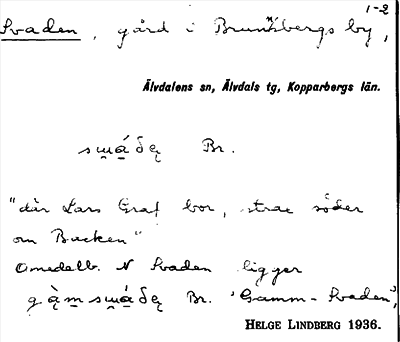 1-2
Svaden, gård i Brunnbergs by,
Älvdalens sn, Älvdals tg, Kopparbergs län.
Br.
"där Lars Graf bor, strax söder
om Backen"
Omedelb. N Svaden ligger
Br. 'Gamm-Svaden',
HELGE LINDBERG 1936.